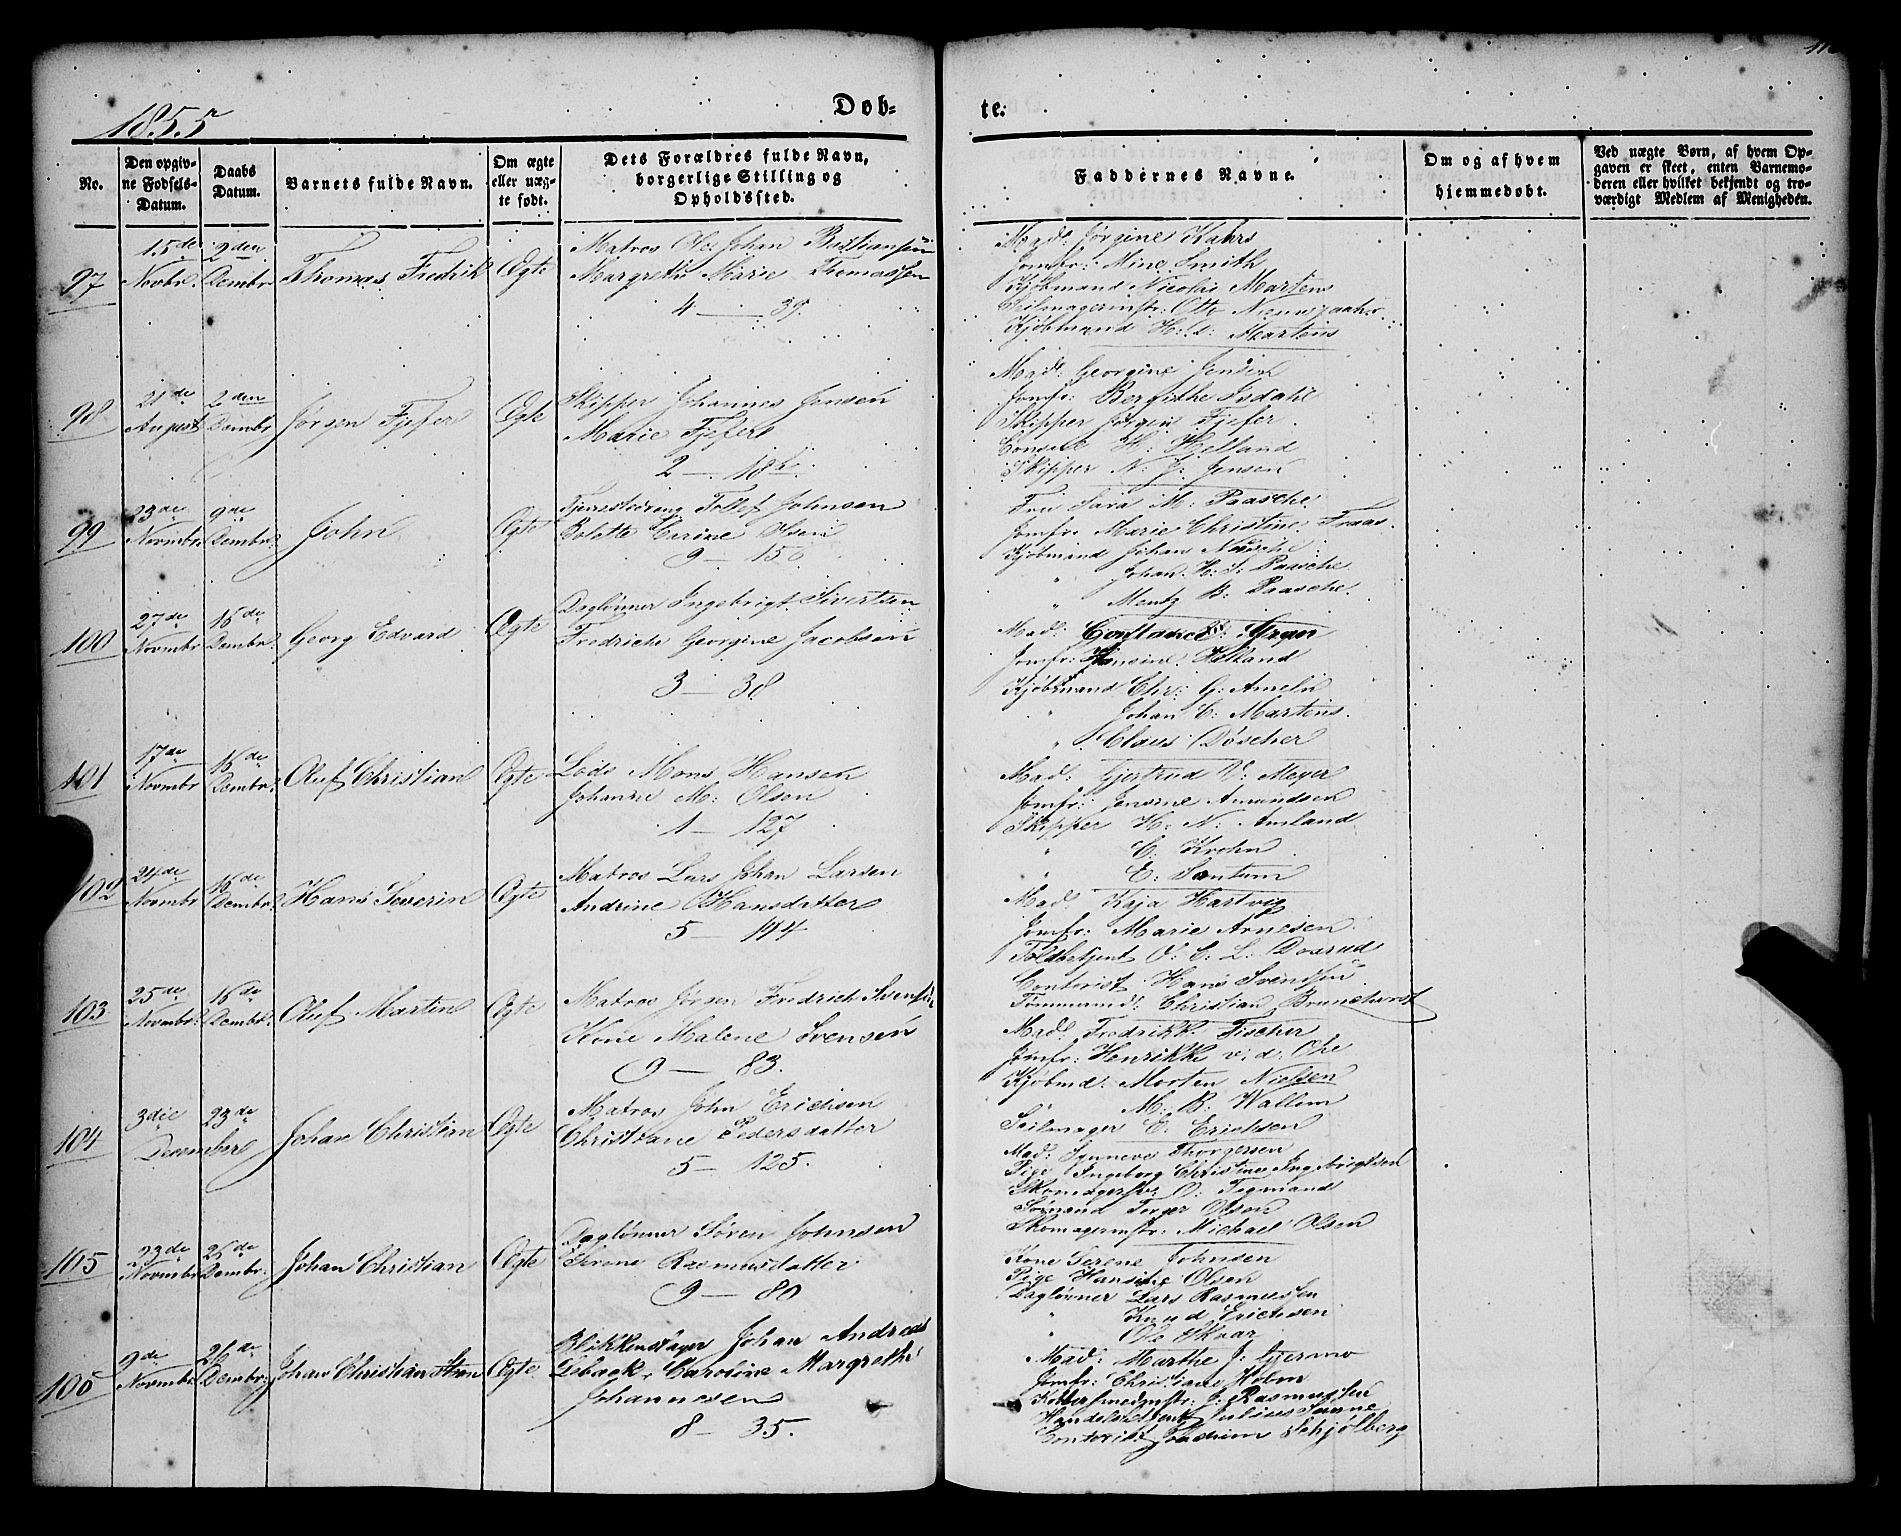 1855
Døb-
te.
No.
Den opgiv-
ne Fødsels-
Datum.
Daabs
Datum.
Barnets fulde Navn.
Om ægte
eller uæg-
te født.
Dets Forældres fulde Navn,
borgerlige Stilling og
Opholdssted.
Faddernes Navne.
Om og af hvem
hjemmedøbt.
Ved uægte Børn, af hvem Op-
gaven er skeet, enten Barnemo-
deren eller hvilket bekjendt og tro-
værdigt Medlem af Menigheden.
97
15de
Novbr.
2den
Dembr
Thomas Fredrik
Ægte
Matros Ole Johan Bastiansen
Margrethe Marie Thomassen
4 — 39.
Mad: Jørgine Kahrs
Jomfr: Mine Smith
Kjøbmand Nicolai Martens
Seilmagermstr: Otto
Kjøbmand H: d: Martens
98
21de
August
2den
Dembr
Jørgen Fjefer
Ægte
Skipper Johannes Jensen
Marie Fjefer
2 — 18
Mad: Georgine Jensen
Jomfr: Bergithe Isdahl
Skipper Jørgen Fjefer
Consul H: Helland
Skipper N: J: Jensen
99
23de
Novmbr
9de
Dembr.
John
Ægte
Tollef Johnsen
Bolette Serine Olsen
9 — 150
Fru Sara M: Paasche
Jomfr. Marie Christine Fraas.
Kjøbmand Johan
" Johan H: S: Paasche
" Mentz B: Paasche.
100
27de
Novmbr
16de
Dembr.
Georg Edvard
Ægte
Daglønner Ingebrigt Sivertsen
Fredriche Georgine Jacobsen
3 — 38
Mad: Constance Gran
Jomfr: Hansine Helland
Kjøbmand Chr: G: Ameln
" Johan C: Martens.
" Claus Døscher
101
17de
Novmbr
16de
Dembr.
Oluf Christian
Ægte
Lods Mons Hansen
Johanne M: Olsen
1 — 127
Mad: Gjertrud V: Meyer
Jomfr: Jensine Amundsen
Skipper H: N: Amland
" C: Krohn
" E: Santum
102
24de
Novmbr
16de
Dembr.
Hans Severin
Ægte
Matros Lars Johan Larsen
Andrine Hansdatter
5 — 144
Mad: Kaja Hartvig
Jomfr: Marie Arnesen
Toldbetjent O: C: L:
Contorist Hans Svendsen
Tømmermd: Christian
103
25de
Novmbr.
16de
Dembr.
Oluf Martin
Ægte
Matros Jørgen Fredrich Svensen
Kone Malene Svensen
9 — 83.
Mad: Fredrikke Fischer
Jomfr: Henrikke v: d: Ohe
Kjøbmd: Morten Nielsen
M: B: Wallem
Seilmager E: Erichsen
104
3die
23de
December
Johan Christian
Ægte
Matros John Erichsen
Christiane Pedersdatter
5 — 125.
Mad: Synneve Thorgersen
Pige Ingeborg Christine Ingebrigtsen
Skomagersv: O: Tegmand
Sømand Torger Olsen
Skomagermstr: Michael Olsen
105
23de
Novmbr
26de
Dembr.
Johan Christian
Ægte
Daglønner Søren Johnsen
Serene Rasmusdatter
9 — 80
Kone Serene Johnsen
Pige Hansine Olsen
Daglønner Lars Rasmussen
" Knud Erichsen
" Ole Skaar
106
9de
Novmbr
26de
Dembr.
Johan Christian
Ægte
Blikkenslager Johan Andreas
Johannesen
Caroline Margrethe
8 — 35.
Mad: Marthe J: Gjermo
Jomfr: Christiane
Kobbersmedmstr: J: Rasmussen
Handelsbetjent Julius
Contorist Schjølberg